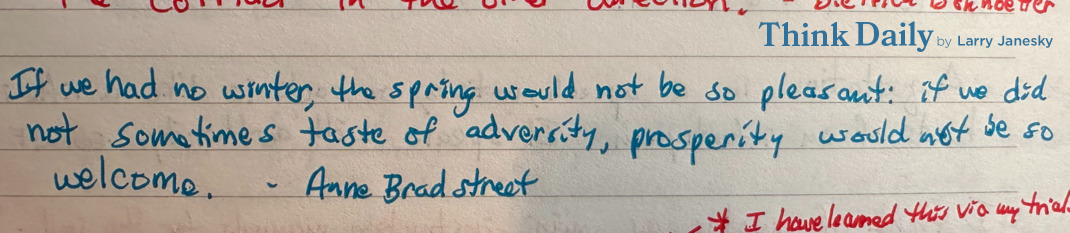 the corridor in the other direction. - Dietrich Bonhoeffer
Think Daily by Larry Janesky
If we had no winter, the spring would not be so pleasant: if we did
not sometimes taste of adversity, prosperity would not be so
welcome. - Anne Bradstreet
* I have learned this via my trial